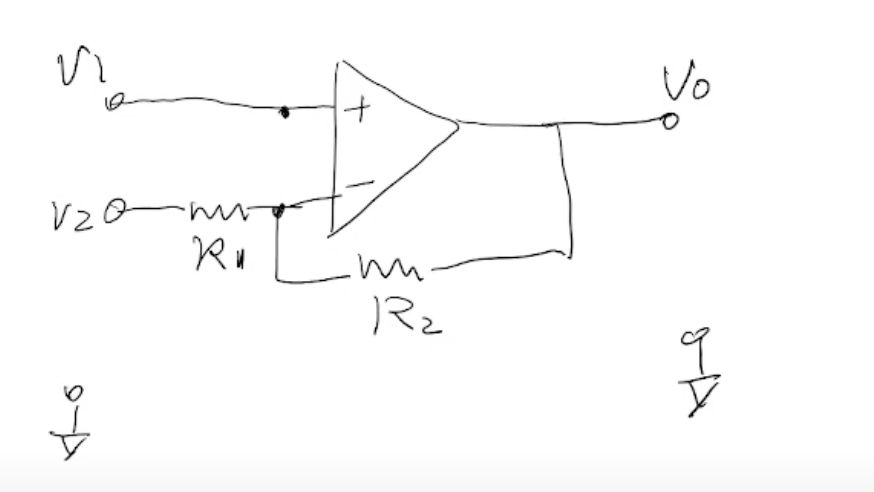 V1
Vo
+
−
V2
R1
R2